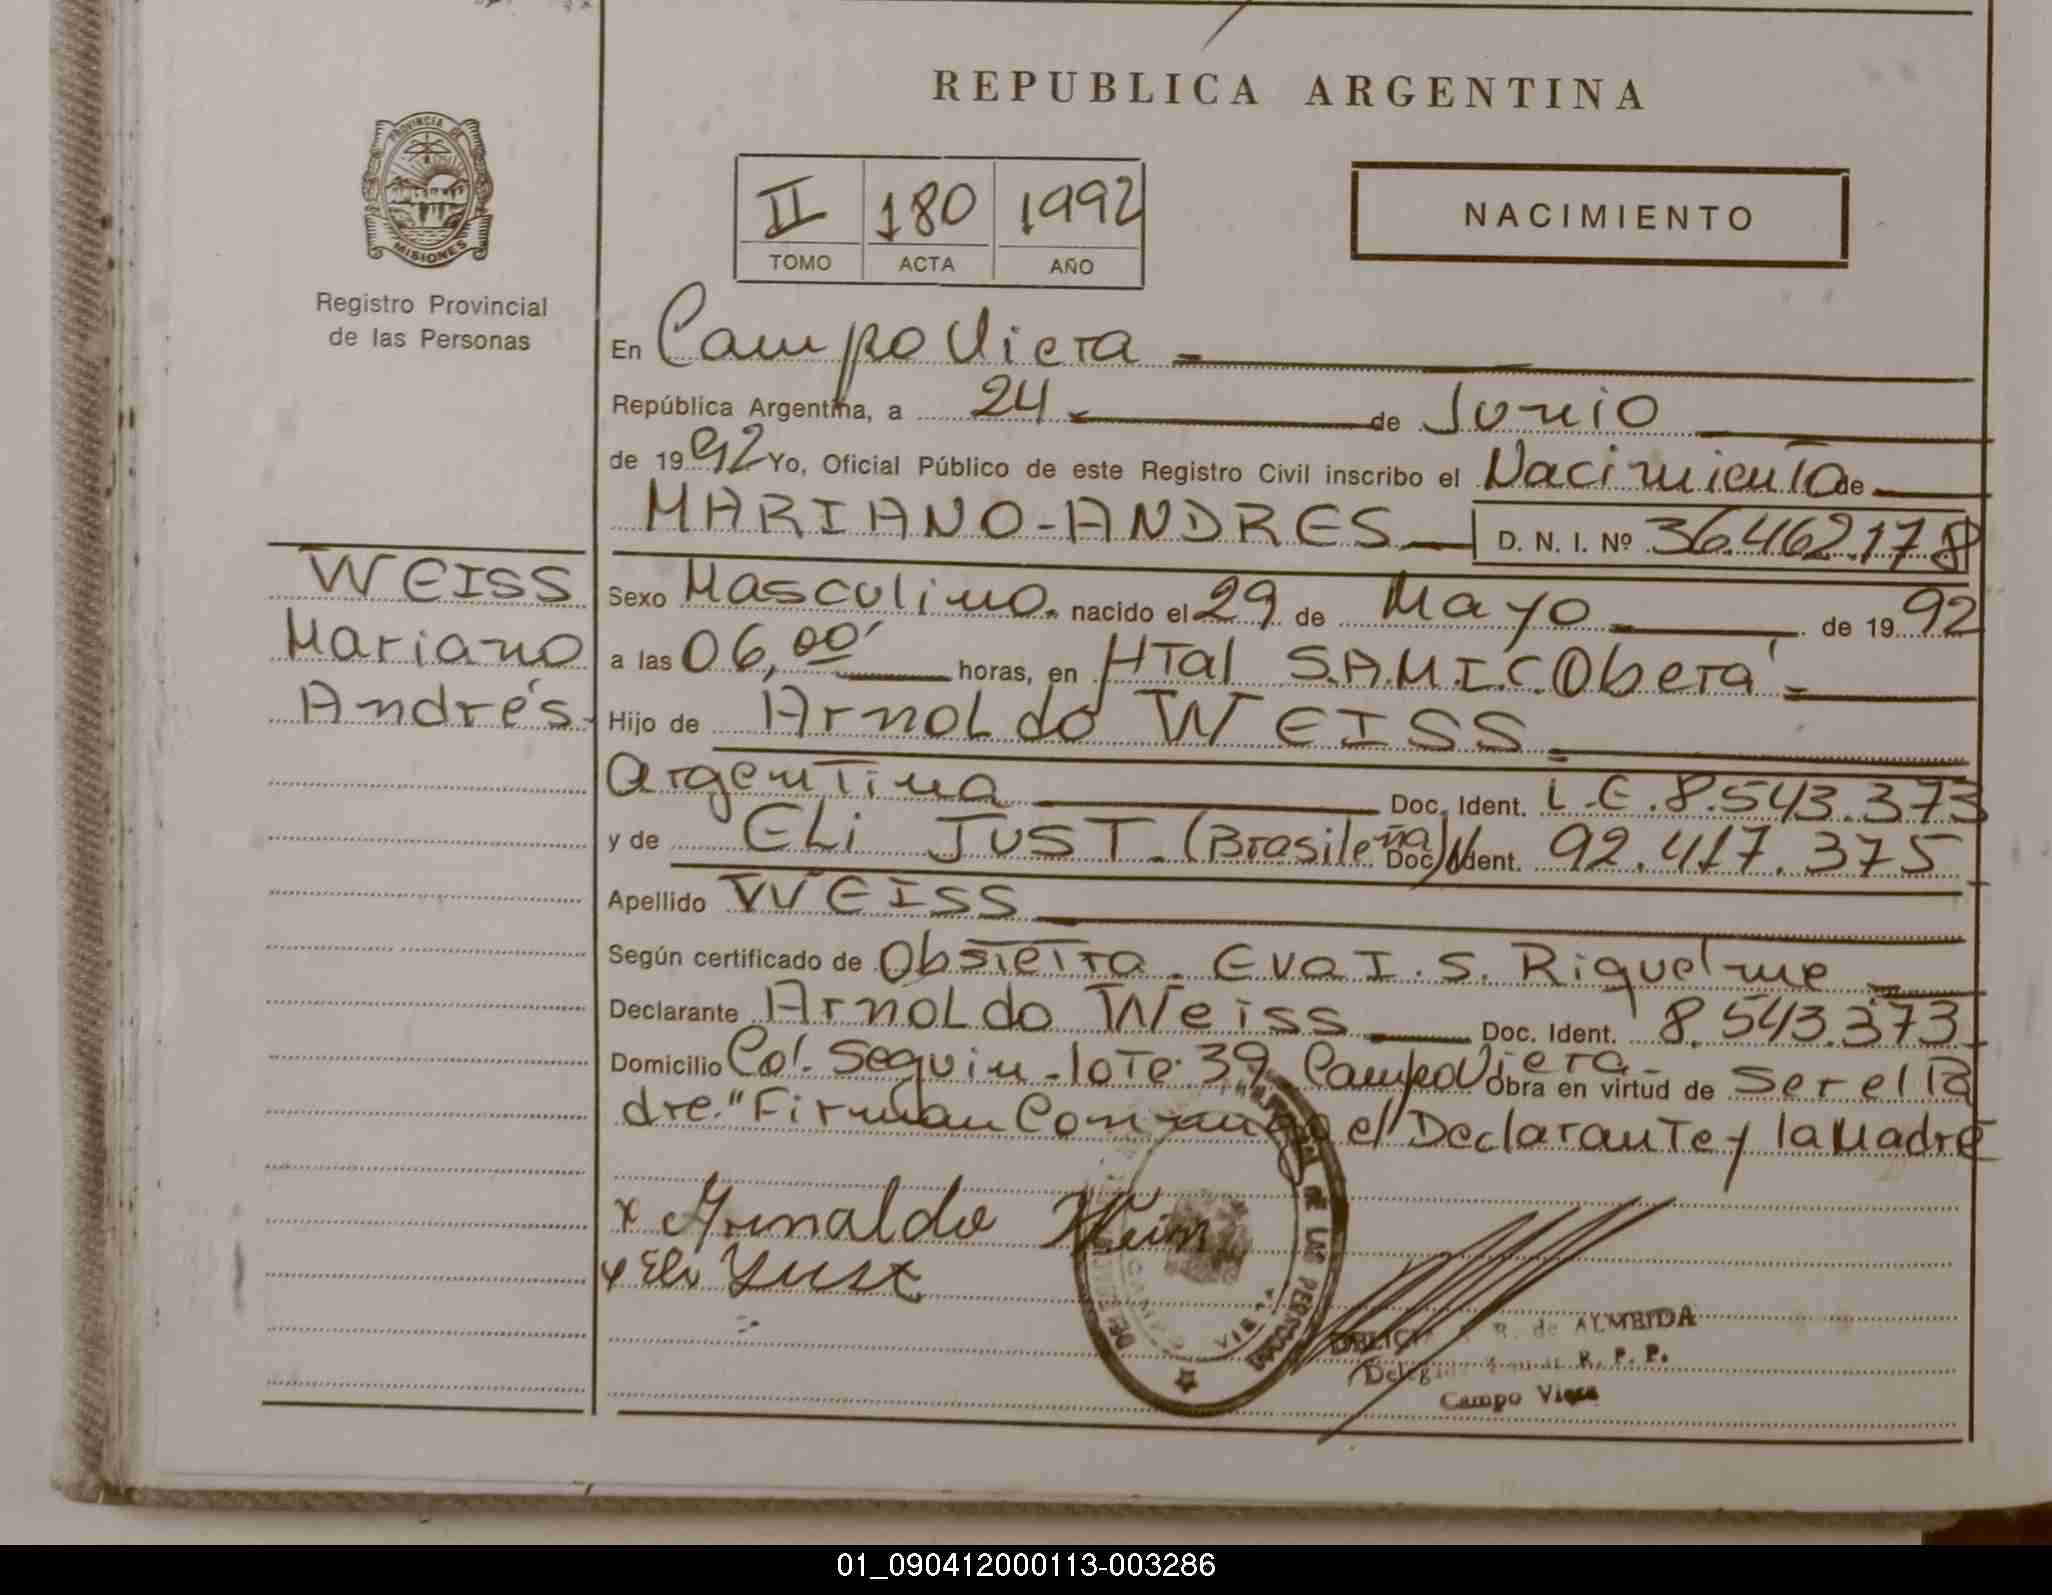 REPUBLICA ARGENTINA
PROVINCIA DE
MISIONES
Registro Provincial
de las Personas
II 180 1992
TOMO ACTA AÑO
NACIMIENTO
En Campo Viera
República Argentina, a 24 de Junio
de 1992 Yo, Oficial Público de este Registro Civil inscribo el Nacimiento de
MARIANO-ANDRES D. N. I. Nº 36.462.178
WEISS
Mariano
Andrés.
Sexo Masculino. nacido el 29 de Mayo de 1992
a las 06,00' horas, en HTal S.A.M.I.C. Oberá
Hijo de ArnoLdo WEISS
argentina Doc. Ident. L.E. 8.543.373
y de ELi JUST. (Brasileña) Doc. Ident. 92.417.375
Apellido WEISS
Según certificado de Obstetra. Eva I. S. Riquelme
Declarante ArnoLdo Weiss Doc. Ident. 8.543.373
Domicilio Col. Seguin - lote 39 Campo Viera - Obra en virtud de ser el Pa
dre." Firman Conmigo el Declarante y la Madre
x Arnoldo Weiss
x Eli Just
DE LAS PERSONAS
CAMPO VIERA
R. de ALMEIDA
R. P. P.
Campo Viera
01_090412000113-003286